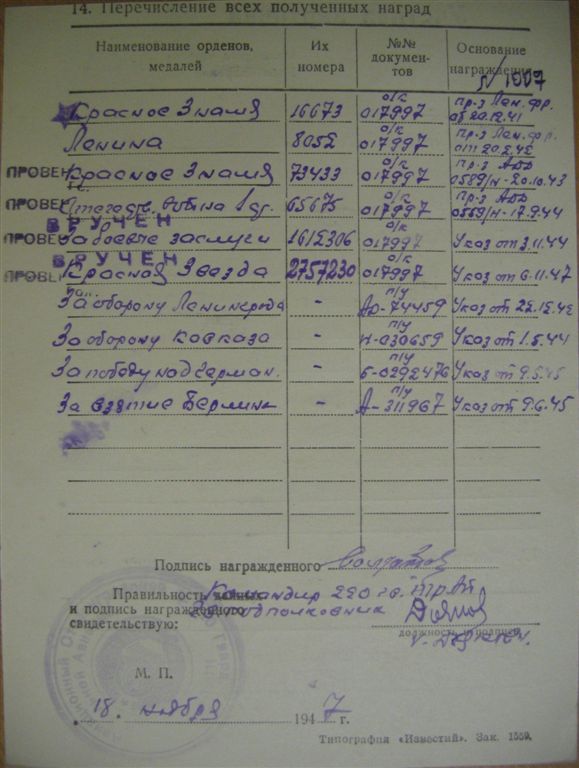 14. Перечисление всех полученных наград
Наименование орденов, медалей Их номера №№ документов Основание награждения
№ 1007
Красное Знамя 16673 о/к 017997 пр-з Лен. фр. 20.12.41
Ленина 8052 о/к 017997 пр-з Лен. фр. 20.2.42
ПРОВЕРЕН Красное Знамя 73433 о/к 017997 пр-з АДД 0589/н-20.10.43
ПРОВЕРЕН Отечеств. война 65675 о/к 017997 пр-з АДД 0569/н-17.9.44
ВРУЧЕН
ПРОВЕРЕН За боевые заслуги 1612306 о/к 017997 Указ от 3.11.44
ВРУЧЕН
ПРОВЕРЕН Красная Звезда 2757230 о/к 017997 Указ от 6.11.47
За оборону Ленинграда - п/у АО-74459 Указ от 22.12.42
За оборону Кавказа - п/у Н-030659 Указ от 1.5.44
За победу над Герман. - п/у Б-0292476 Указ от 9.5.45
За взятие Берлина - п/у А-311967 Указ от 9.6.45
Подпись награжденного
Правильность данных Командир 220 гв.
и подпись награжденного подполковник
свидетельствую:
должность и подпись
М. П.
18. ноября 1947 г.
Типография «Известий». Зак. 1559.